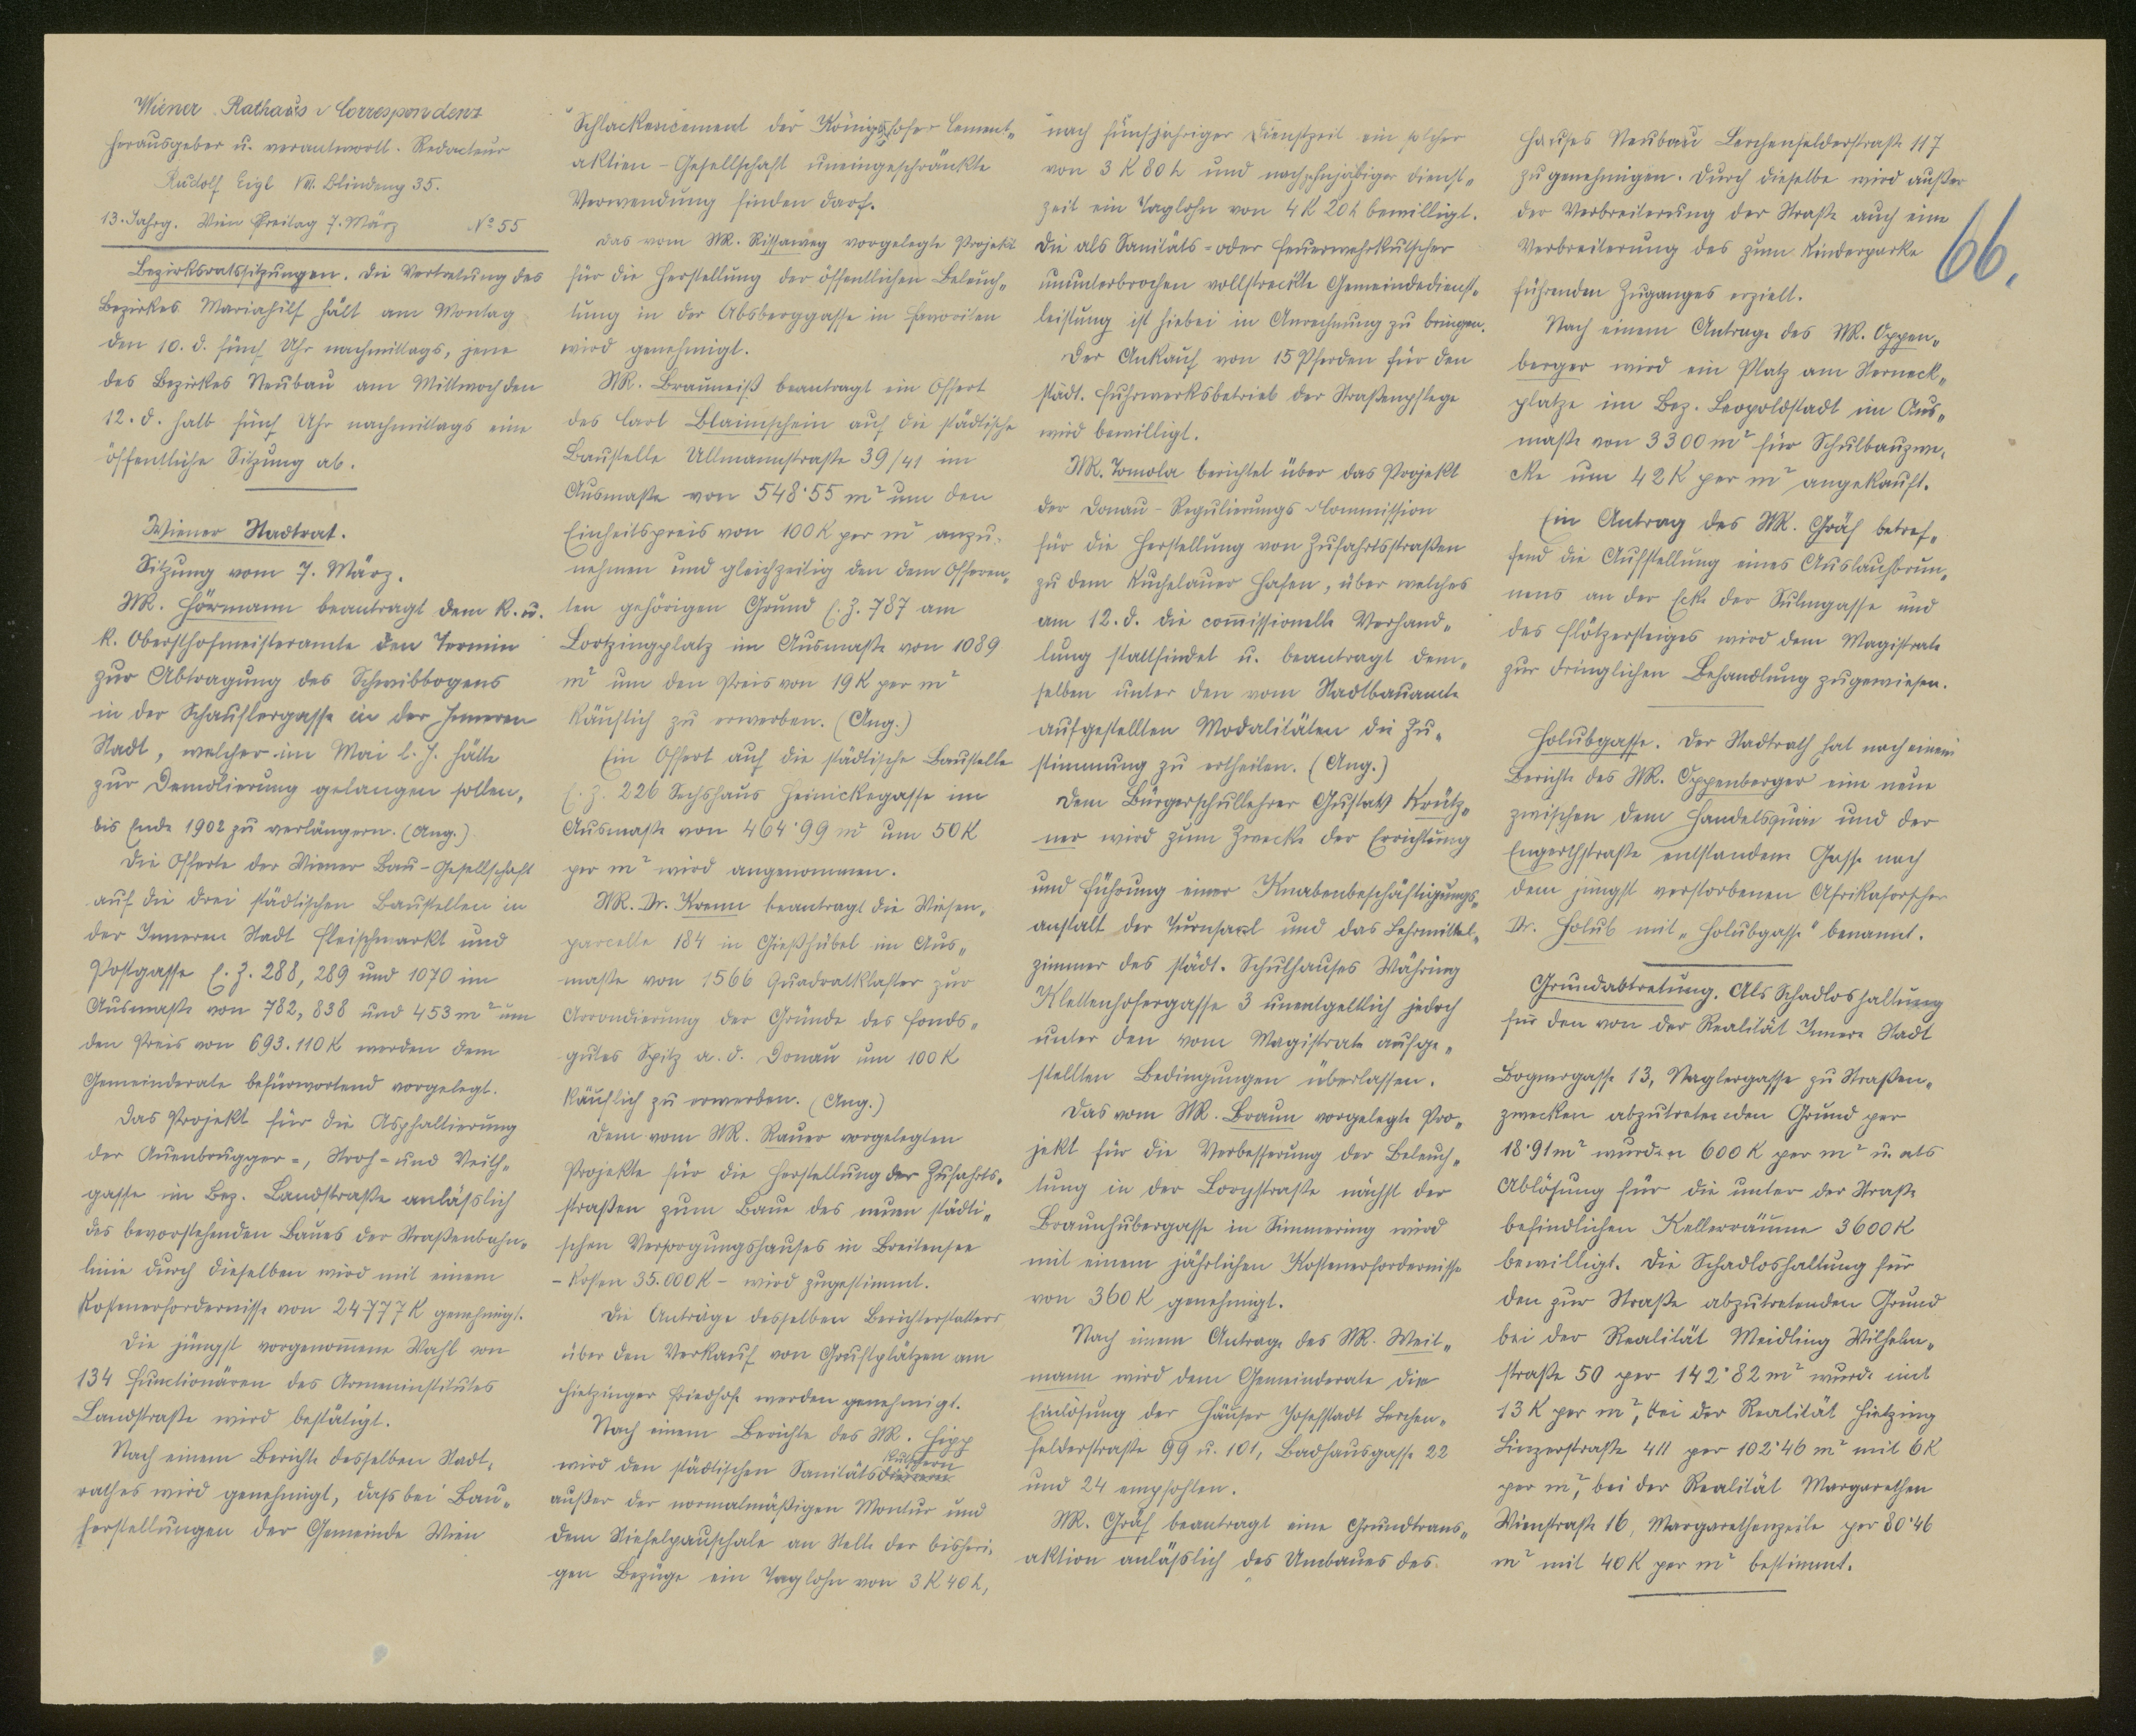 Wiener Rathaus-Correspondenz
Herausgeber u. verantwortl. Redacteur
Rudolf Eigl VIII. Blindeng 35.
13. Jahrg. Wien Freitag 7. März No 55
Bezirksratssitzungen. Die Vertretung des
Bezirkes Mariahilf hält am Montag
den 10. d. fünf Uhr nachmittags, jene
des Bezirkes Neubau am Mittwoch den
12. d. halb fünf Uhr nachmittags eine
öffentliche Sitzung ab.
Wiener Stadtrat.
Sitzung vom 7. März.
StR. Hörmann beantragt dem k. u.
k. Obersthofmeisteramte den Termin
zur Abtragung des Schwibbogens
in der Schauflergasse in der Inneren
Stadt, welcher im Mai l. J. hätte
zur Demolierung gelangen sollen,
bis Ende 1902 zu verlängern. (Ang.)
Die Offerte der Wiener Bau-Gesellschaft
auf die drei städtischen Baustellen in
der Inneren Stadt Fleischmarkt und
Postgasse E. Z. 288, 289 und 1070 im
Ausmaße von 782, 838 und 453 m² um
den Preis von 693.110 K werden dem
Gemeinderate befürwortend vorgelegt.
Das Projekt für die Asphaltierung
der Auenbrugger-, Stroh- und Veith-
gasse im Bez. Landstraße anlässlich
des bevorstehenden Baues der Straßenbahn-
linie durch dieselben wird mit einem
Kostenerfordernisse von 24777 K genehmigt.
Die jüngst vorgenom̅ene Wahl von
134 Functionären des Armeninstitutes
Landstraße wird bestätigt.
Nach einem Berichte desselben Stadt-
rathes wird genehmigt, dass bei Bau-
herstellungen der Gemeinde Wien
Schlackencement der Königshofer Cement-
aktien-Gesellschaft uneingeschränkte
Verwendung finden darf.
Das vom StR. Rissaweg vorgelegte Projekt
für die Herstellung der öffentlichen Beleuch-
tung in der Absberggasse in Favoriten
wird genehmigt.
StR. Brauneiß beantragt ein Offert
des Carl Blaimschein auf die städtische
Baustelle Ullmannstraße 39/41 im
Ausmaße von 548·55 m² um den
Einheitspreis von 100 K per m² anzu-
nehmen und gleichzeitig den dem Offeren-
ten gehörigen Grund E. Z. 787 am
Lortzingplatz im Ausmaße von 1089
m² um den Preis von 19 K per m²
käuflich zu erwerben. (Ang.)
Ein Offert auf die städtische Baustelle
E. Z. 226 Sechshaus Heinickegasse im
Ausmaße von 464·99 m² um 50 K
per m² wird angenommen.
StR. Dr. Krenn beantragt die Wiesen-
parcelle 184 in Gießhübel im Aus-
maße von 1566 Quadratklafter zur
Arrondierung der Gründe des Fonds-
gutes Spitz a. d. Donau um 100 K
käuflich zu erwerben. (Ang.)
Dem vom StR. Rauer vorgelegten
Projekte für die Herstellung der Zufahrts-
straßen zum Baue des neuen städti-
schen Versorgungshauses in Breitensee
- Kosten 35.000 K - wird zugestimmt.
Die Anträge desselben Berichterstatters
über den Verkauf von Gruftplätzen am
Hietzinger Friedhofe werden genehmigt.
Nach einem Berichte des StR. Hipp
wird den städtischen Sanitätsdienern Kutschern
außer der normalmäßigen Montur und
dem Stiefelpauschale an Stelle der bisheri-
gen Bezüge ein Taglohn von 3 K 40 h,
nach fünfjähriger Dienstzeit ein solcher
von 3 K 80 h und nach zehnjähriger Dienst-
zeit ein Taglohn von 4 K 20 h bewilligt.
Die als Sanitäts- oder Feuerwehrkutscher
ununterbrochen vollstreckte Gemeindedienst-
leistung ist hiebei in Anrechnung zu bringen.
Der Ankauf von 15 Pferden für den
städt. Fuhrwerksbetrieb der Straßenpflege
wird bewilligt.
StR. Tomola berichtet über das Projekt
der Donau-Regulierungs-Commission
für die Herstellung von Zufahrtsstraßen
zu dem Kuchelauer Hafen, über welches
am 12. d. die com̅issionelle Verhand-
lung stattfindet u. beantragt dem-
selben unter den vom Stadtbauamte
aufgestellten Modalitäten die Zu-
stimmung zu ertheilen. (Ang.)
Dem Bürgerschullehrer Gustav Kreutz-
ner wird zum Zwecke der Errichtung
und Führung einer Knabenbeschäftigungs-
anstalt der Turnsaal und das Lehrmittel-
zimmer des städt. Schulhauses Währing
Klettenhofergasse 3 unentgeltlich jedoch
unter den vom Magistrate aufge-
stellten Bedingungen überlassen.
Das vom StR. Braun vorgelegte Pro-
jekt für die Verbesserung der Beleuch-
tung in der Lorystraße nächst der
Braunhubergasse in Simmering wird
mit einem jährlichen Kostenerfordernisse
von 360 K genehmigt.
Nach einem Antrage des StR. Weit-
mann wird dem Gemeinderate die
Einlösung der Häuser Josefstadt Lerchen-
felderstraße 99 u. 101, Badhausgasse 22
und 24 empfohlen.
StR. Gräf beantragt eine Grundtrans-
aktion anlässlich des Umbaues des
Hauses Neubau Lerchenfelderstraße 117
zu genehmigen. Durch dieselbe wird außer
der Verbreiterung der Straße auch eine
Verbreiterung des zum Kinderparke
führenden Zuganges erzielt.
66.
Nach einem Antrage des StR. Oppen-
berger wird ein Platz am Sterneck-
platze im Bez. Leopoldstadt im Aus-
maße von 3300 m² für Schulbauzwe-
cke um 42 K per m² angekauft.
Ein Antrag des StR. Gräf betref-
fend die Aufstellung eines Auslaufbrun-
nens an der Ecke der Sulmgasse und
des Flötzersteiges wird dem Magistrate
zur dringlichen Behandlung zugewiesen.
Holubgasse. Der Stadtrath hat nach einem
Berichte des StR. Oppenberger eine neue
zwischen dem Handelsquai und der
Engerthstraße entstandene Gasse nach
dem jüngst verstorbenen Afrikaforscher
Dr. Holub mit „Holubgasse" benannt.
Grundabtretung. Als Schadloshaltung
für den von der Realität Innere Stadt
Bognergasse 13, Naglergasse zu Straßen-
zwecken abzutretenden Grund per
18·91 m² wurden 600 K per m² u. als
Ablösung für die unter der Straße
befindlichen Kellerräume 3600 K
bewilligt. Die Schadloshaltung für
den zur Straße abzutretenden Grund
bei der Realität Meidling Wilhelm-
straße 50 per 142·82 m² wurde mit
13 K per m², bei der Realität Hietzing
Linzerstraße 411 per 102·46 m² mit 6 K
per m², bei der Realität Margarethen
Wienstraße 16, Margarethenzeile per 80·46
m² mit 40 K per m² bestimmt.